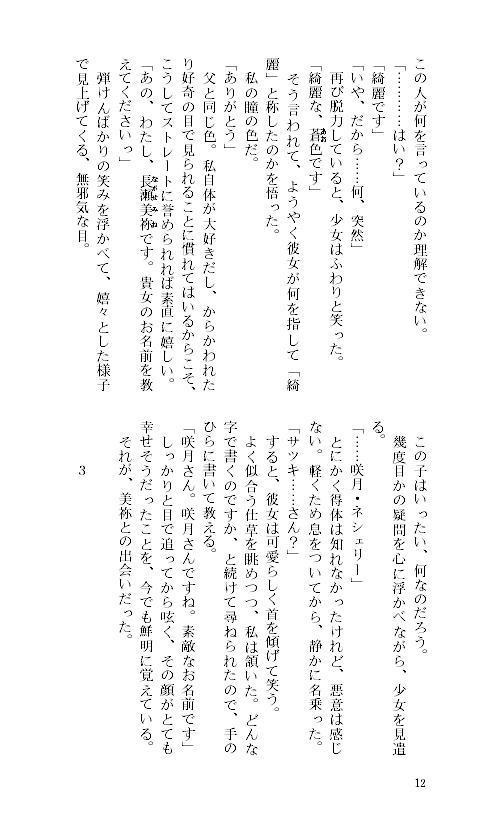 この人が何を言っているのか理解できない。
「…………はい？」
「綺麗です」
「いや、だから……何、突然」
再び脱力していると、少女はふわりと笑った。
「綺麗な、蒼色です」
そう言われて、ようやく彼女が何を指して「綺
麗」と称したのかを悟った。
私の瞳の色だ。
「ありがとう」
父と同じ色。私自体が大好きだし、からかわれた
り好奇の目で見られることに慣れてはいるからこそ、
こうしてストレートに誉められれば素直に嬉しい。
「あの、わたし、長瀬美祢です。貴女のお名前を教
えてくださいっ」
弾けんばかりの笑みを浮かべて、嬉々とした様子
で見上げてくる、無邪気な目。
この子はいったい、何なのだろう。
幾度目かの疑問を心に浮かべながら、少女を見遣
る。
「……咲月・ネシェリー」
とにかく得体は知れなかったけれど、悪意は感じ
ない。軽くため息をついてから、静かに名乗った。
「サツキ……さん？」
すると、彼女は可愛らしく首を傾げて笑う。
よく似合う仕草を眺めつつ、私は頷いた。どんな
字で書くのですか、と続けて尋ねられたので、手の
ひらに書いて教える。
「咲月さん。咲月さんですね。素敵なお名前です」
しっかりと目で追ってから呟く、その顔がとても
幸せそうだったことを、今でも鮮明に覚えている。
それが、美祢との出会いだった。
3
12